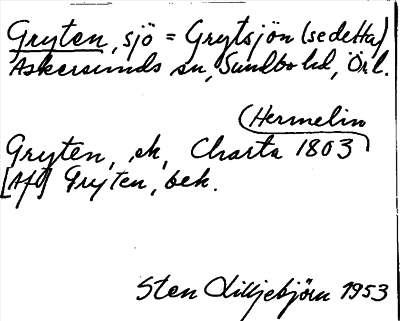 Gryten, sjö = Grytsjön (se detta)
Askersunds sn, Sundbo hd, Örl.
(Hermelin
Gryten, ek, Charta 1803
[Af] Gryten, bek.
Sten Lilljebjörn 1953